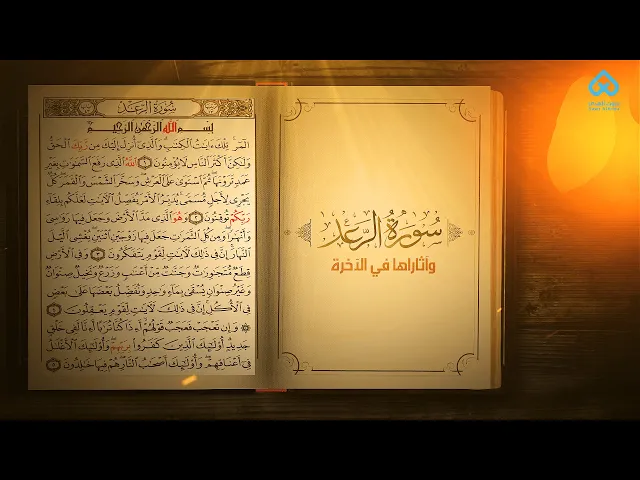 سُورَةُ الرَّعْدِ
بِسْمِ اللَّهِ الرَّحْمَٰنِ الرَّحِيمِ
الٓمٓر ۚ تِلْكَ ءَايَٰتُ ٱلْكِتَٰبِ ۗ وَٱلَّذِىٓ أُنزِلَ إِلَيْكَ مِن رَّبِّكَ ٱلْحَقُّ
وَلَٰكِنَّ أَكْثَرَ ٱلنَّاسِ لَا يُؤْمِنُونَ ١ ٱللَّهُ ٱلَّذِى رَفَعَ ٱلسَّمَٰوَٰتِ بِغَيْرِ
عَمَدٍ تَرَوْنَهَا ۖ ثُمَّ ٱسْتَوَىٰ عَلَى ٱلْعَرْشِ ۖ وَسَخَّرَ ٱلشَّمْسَ وَٱلْقَمَرَ ۖ كُلٌّ
يَجْرِى لِأَجَلٍ مُّسَمًّى ۚ يُدَبِّرُ ٱلْأَمْرَ يُفَصِّلُ ٱلْءَايَٰتِ لَعَلَّكُم بِلِقَآءِ
رَبِّكُمْ تُوقِنُونَ ٢ وَهُوَ ٱلَّذِى مَدَّ ٱلْأَرْضَ وَجَعَلَ فِيهَا رَوَٰسِىَ
وَأَنْهَٰرًا ۖ وَمِن كُلِّ ٱلثَّمَرَٰتِ جَعَلَ فِيهَا زَوْجَيْنِ ٱثْنَيْنِ ۖ يُغْشِى ٱلَّيْلَ
ٱلنَّهَارَ ۚ إِنَّ فِى ذَٰلِكَ لَءَايَٰتٍ لِّقَوْمٍ يَتَفَكَّرُونَ ٣ وَفِى ٱلْأَرْضِ
قِطَعٌ مُّتَجَٰوِرَٰتٌ وَجَنَّٰتٌ مِّنْ أَعْنَٰبٍ وَزَرْعٌ وَنَخِيلٌ صِنْوَانٌ
وَغَيْرُ صِنْوَانٍ يُسْقَىٰ بِمَآءٍ وَٰحِدٍ وَنُفَضِّلُ بَعْضَهَا عَلَىٰ بَعْضٍ
فِى ٱلْأُكُلِ ۚ إِنَّ فِى ذَٰلِكَ لَءَايَٰتٍ لِّقَوْمٍ يَعْقِلُونَ ٤
۞ وَإِن تَعْجَبْ فَعَجَبٌ قَوْلُهُمْ أَءِذَا كُنَّا تُرَٰبًا أَءِنَّا لَفِى خَلْقٍ
جَدِيدٍ ۗ أُو۟لَٰٓئِكَ ٱلَّذِينَ كَفَرُوا۟ بِرَبِّهِمْ ۖ وَأُو۟لَٰٓئِكَ ٱلْأَغْلَٰلُ
فِىٓ أَعْنَاقِهِمْ ۖ وَأُو۟لَٰٓئِكَ أَصْحَٰبُ ٱلنَّارِ ۖ هُمْ فِيهَا خَٰلِدُونَ ٥
سُورَةُ الرَّعْدِ
وآثاراها في الآخرة